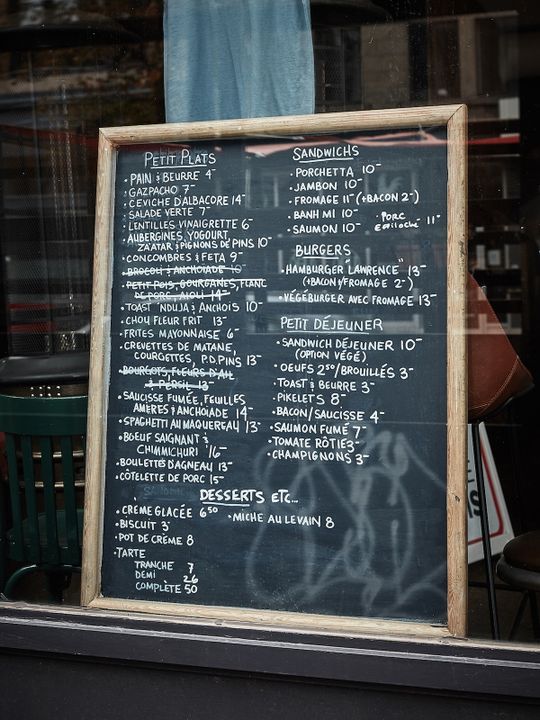 PETIT PLATS
• PAIN & BEURRE 4-
• GAZPACHO 7-
• CEVICHE D'ALBACORE 14-
• SALADE VERTE 7-
• LENTILLES VINAIGRETTE 6-
• AUBERGINES, YOGOURT,
ZA'ATAR & PIGNONS DE PINS 10-
• CONCOMBRES & FETA 9-
• BROCOLI & ANCHOIADE 10-
• PETIT POIS, GOURGANES, FLANC
DE PORC, AIOLI 14-
• TOAST 'NDUJA & ANCHOIS 10-
• CHOU FLEUR FRIT 13-
• FRITES MAYONNAISE 6-
• CREVETTES DE MATANE,
COURGETTES, P.D. PINS 13-
• BOURGOTS, FLEURS D'AIL
& PERSIL 13-
• SAUCISSE FUMÉE, FEUILLES
AMÈRES & ANCHOIADE 14-
• SPAGHETTI AU MAQUEREAU 13-
• BOEUF SAIGNANT &
CHIMMICHURI 16-
• BOULETTES D'AGNEAU 13-
• CÔTELETTE DE PORC 15-
SANDWICHS
• PORCHETTA 10-
• JAMBON 10-
• FROMAGE 11- (+BACON 2-)
• BANH MI 10-
• SAUMON 10-
• PORC
EFFILOCHÉ 11-
BURGERS
• HAMBURGER "LAWRENCE" 13-
(+BACON & FROMAGE 2-)
• VÉGÉBURGER AVEC FROMAGE 13-
PETIT DÉJEUNER
• SANDWICH DÉJEUNER 10-
(OPTION VÉGÉ)
• OEUFS 2.50/BROUILLÉS 3-
• TOAST & BEURRE 3-
• PIKELETS 8-
• BACON/SAUCISSE 4-
• SAUMON FUMÉ 7-
• TOMATE RÔTIE 3-
• CHAMPIGNONS 3-
DESSERTS ETC...
• CRÈME GLACÉE 6.50
• BISCUIT 3-
• POT DE CRÈME 8
• TARTE
TRANCHE 7
DEMI 26
COMPLÈTE 50
• MICHE AU LEVAIN 8